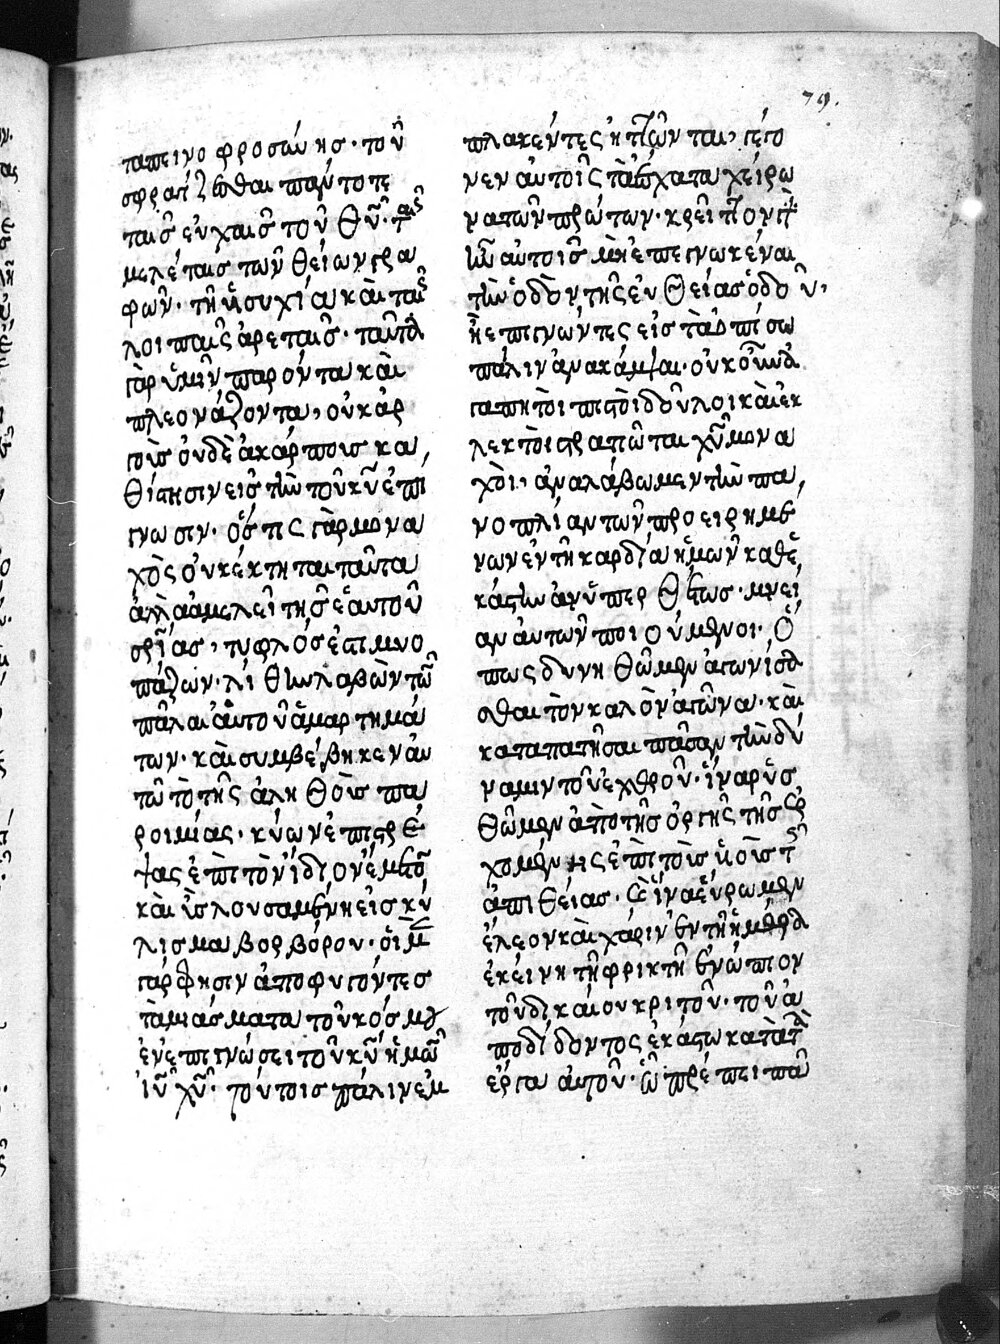 79.
ταπεινοφροσύνης· τοῦ
σφραγίζεσθαι πάντοτε
ταῖς εὐχαῖς τοῦ θῦ· ταῖς
μελέταις τῶν θείων γρα
φῶν· τῆ ἡσυχία καὶ ταῖς
λοιπαῖς ἀρεταῖς· ταῦτα
γὰρ ὑμῖν παρόντα καὶ
πλεονάζοντα, οὐκ ἀρ
γοὺς οὐδὲ ἀκάρπους κα
θίστησιν εἰς τὴν τοῦ κῦ ἐπί
γνωσιν· ὅστις γὰρ μονα
χὸς οὐ κέκτηται ταῦτα
ἀλλὰ ἀμελεῖ τῆς ἑαυτοῦ
σρίας, τυφλός ἐστι μυο
πάζων· λίθην λαβὼν τῶν
πάλαι αὐτοῦ ἁμαρτημά
των· καὶ συμβέβηκεν αὐ
τῶ τὸ τῆς ἀληθοῦς πα
ροιμίας· κύων ἐπιστρέ
ψας ἐπὶ τὸν ἴδιον ἔμετον
καὶ ὗς λουσαμένη εἰς κύ
λισμα βορβόρου· οἱ μὲν
γάρ φησιν ἀποφυγόντες
τὰ μιάσματα τοῦ κόσμου
ἐν ἐπιγνώσει τοῦ κῦ ἡμῶν
ἰῦ χῦ· τούτοις πάλιν ἐμ
πλακέντες ἡττῶνται, γέγο
νεν αὐτοῖς τὰ ἔσχατα χείρω
να τῶν πρώτων· κρεῖττον γὰρ
ἦν αὐτοῖς μὴ ἐπεγνωκέναι
τὴν ὁδὸν τῆς ἐνθείας ὁδοῦ,
ἢ ἐπιγνώντες εἰς τὰ ὀπίσω
πάλιν ἀνακάμψαι· οὐκοῦν ἀ
γαπητοὶ πιστοὶ δοῦλοι καὶ ἐκ
λεκτοὶ στρατιῶται χῦ μονα
χοὶ, ἀναλάβωμεν τὴν πα
νοπλίαν τῶν προειρημέ
νων ἐν τῆ καρδία ἡμῶν καθε
κάστην ἀνύπερθέτως· μνεί
αν αὐτῶν ποιούμενοι, ὅ
πως δυνηθῶμεν ἀγωνίσα
σθαι τὸν καλὸν ἀγῶνα· καὶ
καταπατῆσαι πᾶσαν τὴν δύ
ναμιν τοῦ ἐχθροῦ· ἵνα ῥυσ
θῶμεν ἀπὸ τῆς ὀργῆς τῆς ἐρ
χομένης ἐπὶ τοὺς υἱοὺς τῆς
ἀπιθείας· καὶ ἵνα εὕρωμεν
ἔλεον καὶ χάριν ἐν τῆ ἡμέρα
ἐκείνη τῆ φρικτῆ ἐνώπιον
τοῦ δικαίου κριτοῦ· τοῦ ἀ
ποδίδοντος ἑκάστω κατὰ τὰ
ἔργα αὐτοῦ· ὧ πρέπει πᾶ